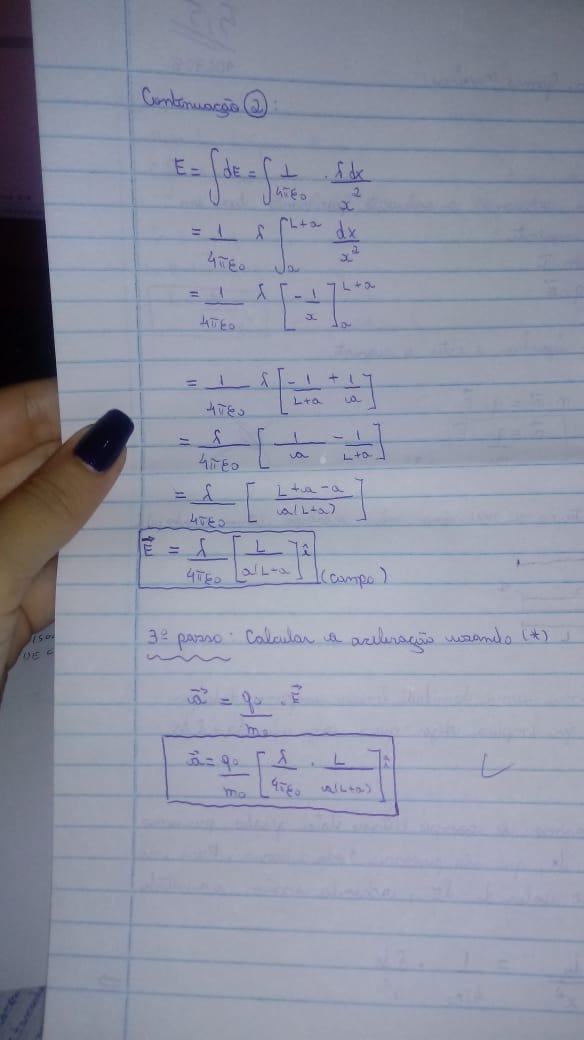 Continuação ②:
E = ∫ dE = ∫ 1/4πε₀ . λdx/x²
= 1/4πε₀ λ ∫ₐ^(L+a) dx/x²
= 1/4πε₀ λ [-1/x]ₐ^(L+a)
= 1/4πε₀ λ [-1/(L+a) + 1/a]
= λ/4πε₀ [1/a - 1/(L+a)]
= λ/4πε₀ [(L+a-a)/a(L+a)]
E⃗ = λ/4πε₀ [L/a(L+a)] î (campo)
3º passo: Calcular a aceleração usando (*)
a⃗ = q₀/m₀ . E⃗
a⃗ = q₀/m₀ [λ/4πε₀ . L/a(L+a)] î